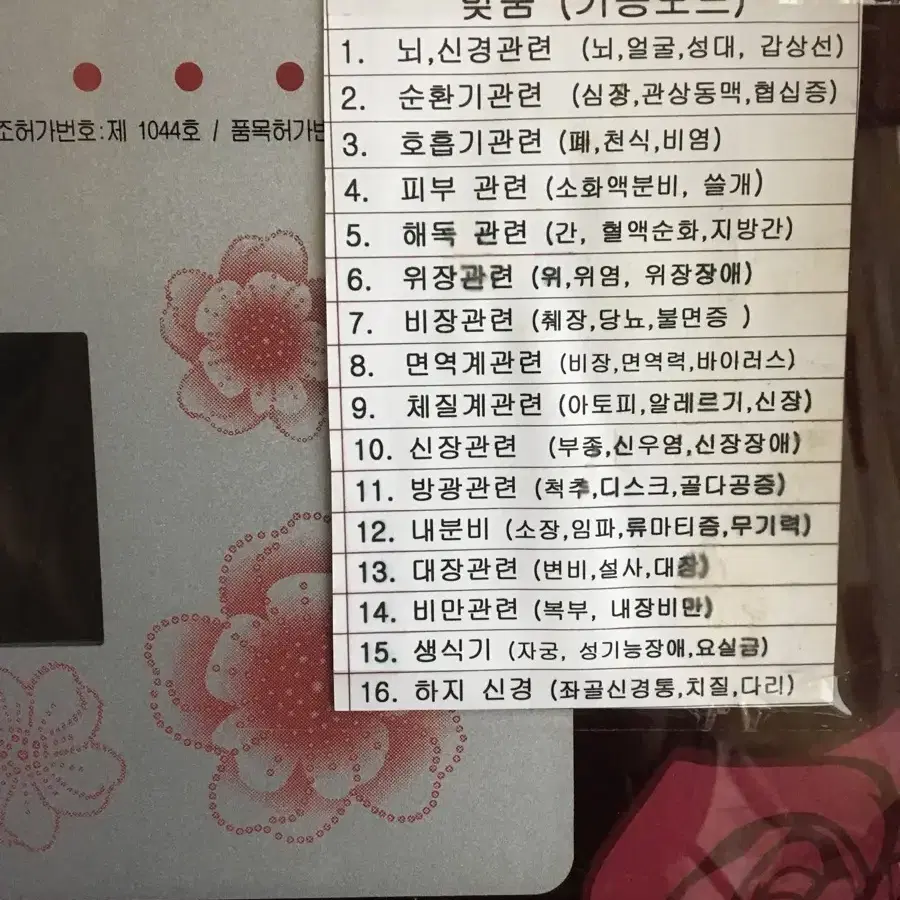 맞춤 (기능모드)
1. 뇌,신경관련 (뇌,얼굴,성대, 갑상선)
2. 순환기관련 (심장,관상동맥,협십증)
3. 호흡기관련 (폐,천식,비염)
4. 피부 관련 (소화액분비, 쓸개)
조허가번호:제 1044호 / 품목허가번
5. 해독 관련 (간, 혈액순화,지방간)
6. 위장관련 (위,위염, 위장장애)
7. 비장관련 (췌장,당뇨,불면증 )
8. 면역계관련 (비장,면역력,바이러스)
9. 체질계관련 (아토피,알레르기,신장)
10. 신장관련 (부종,신우염,신장장애)
11. 방광관련 (척추,디스크,골다공증)
12. 내분비 (소장,임파,류마티즘,무기력)
13. 대장관련 (변비,설사,대장)
14. 비만관련 (복부, 내장비만)
15. 생식기 (자궁, 성기능장애,요실금)
16. 하지 신경 (좌골신경통,치질,다리)